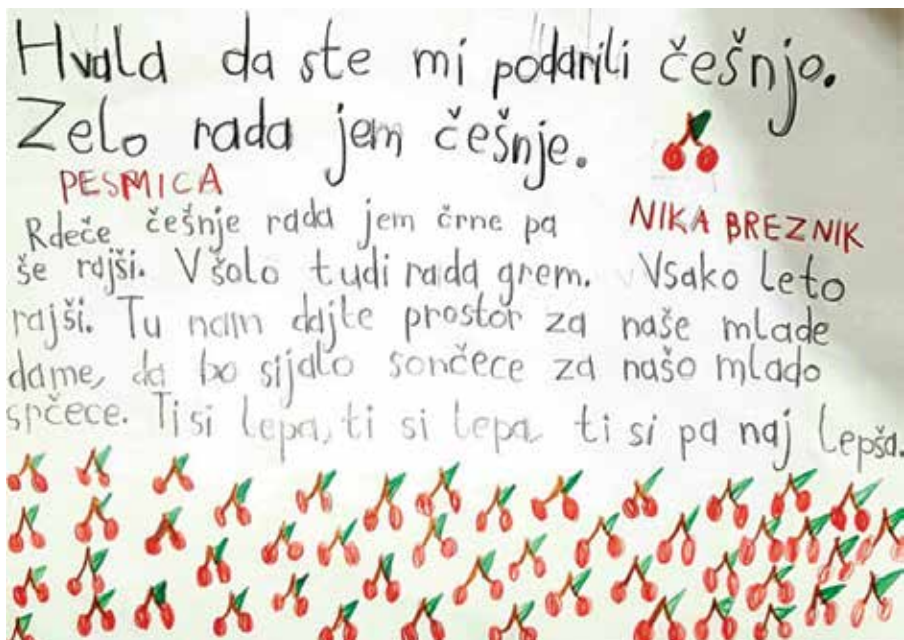 Hvala da ste mi podarili češnjo.
Zelo rada jem češnje.
PESMICA
NIKA BREZNIK
Rdeče češnje rada jem črne pa
še rajši. V šolo tudi rada grem. Vsako leto
rajši. Tu nam dajte prostor za naše mlade
dame, da bo sijalo sončece za našo mlado
srčece. Ti si lepa, ti si lepa, ti si pa naj lepša.